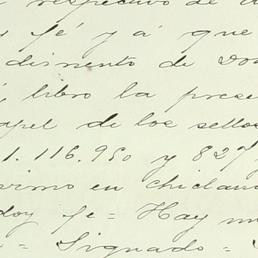 respectivo de
fé y á que
dimiento de Don
libro la prese
apel de los sellos
1.116.950 y 827
ximo en chiclana
doy fe = Hay un
= Signado =